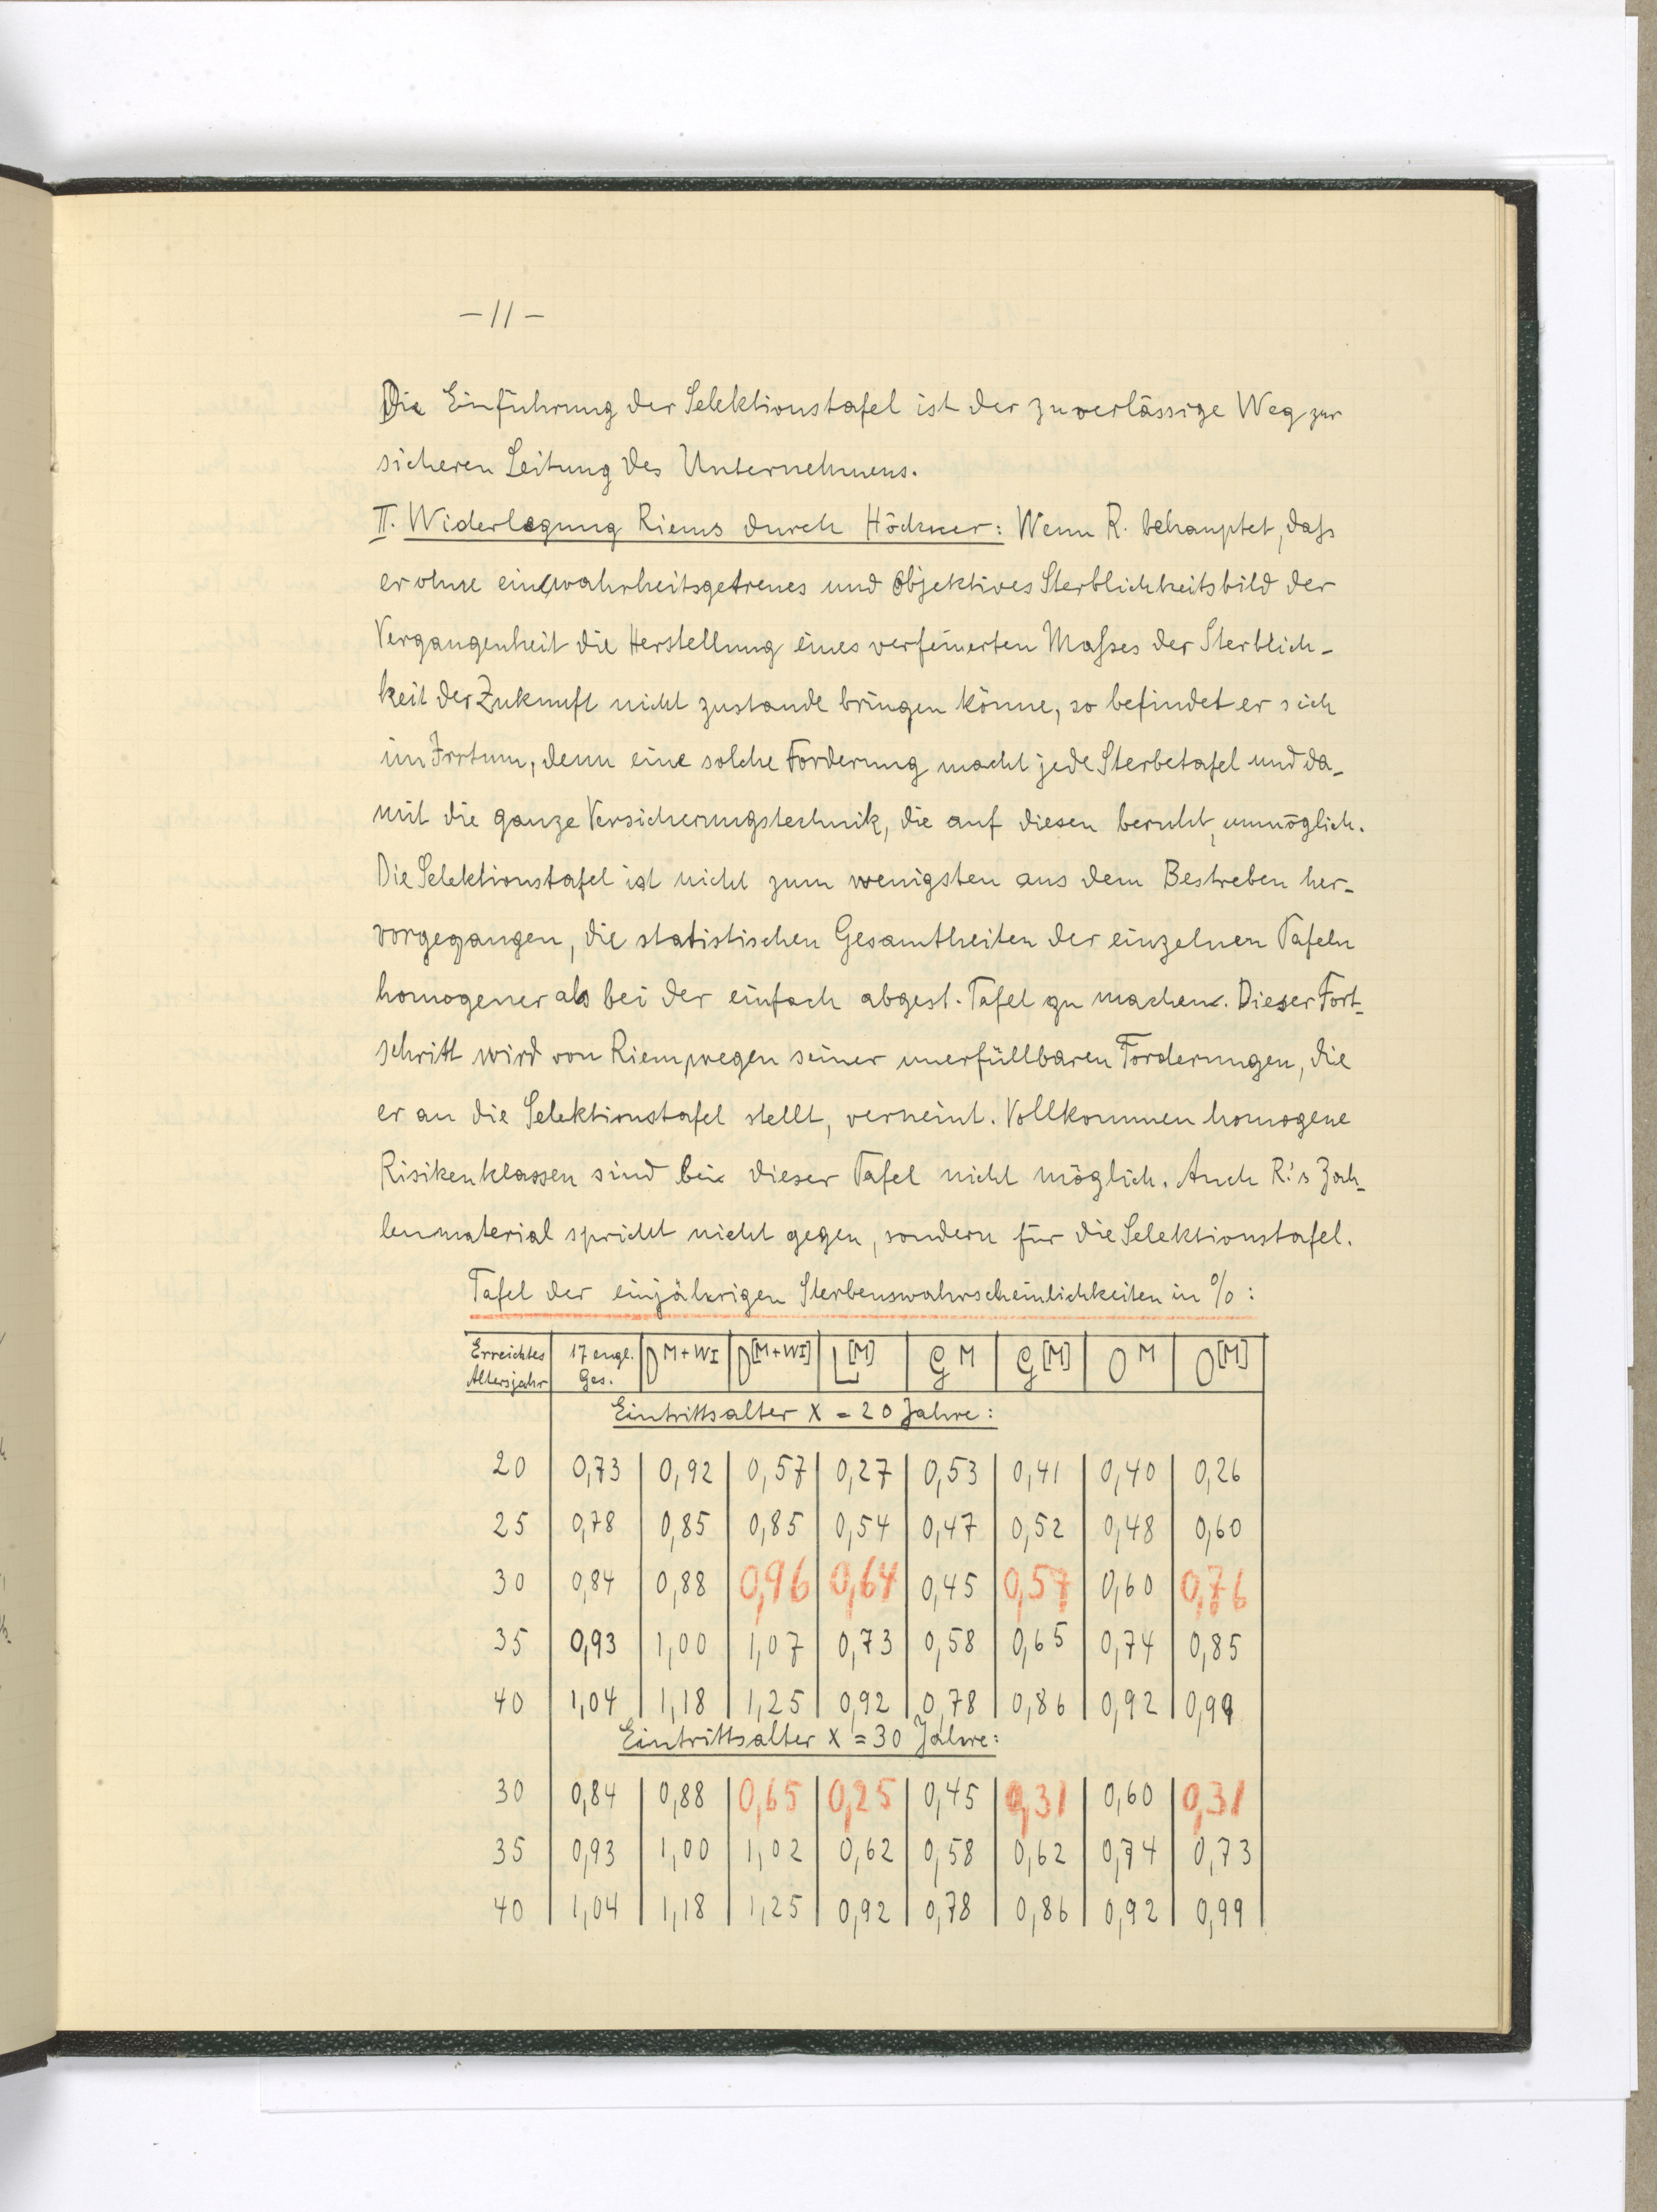 -11-
Die Einführung der Selektionstafel ist der zuverlässige Weg zur
sicheren Leitung des Unternehmens.
II. Widerlegung Riems durch Höckner: Wenn R. behauptet, dass
er ohne ein wahrheitsgetreues und objektives Sterblichkeitsbild der
Vergangenheit die Herstellung eines verfeinerten Masses der Sterblich-
keit der Zukunft nicht zustande bringen könne, so befindet er sich
im Irrtum, denn eine solche Forderung macht jede Sterbetafel und da-
mit die ganze Versicherungstechnik, die auf diesen beruht, unmöglich.
Die Selektionstafel ist nicht zum wenigsten aus dem Bestreben her-
vorgegangen, die statistischen Gesamtheiten der einzelnen Tafeln
homogener als bei der einfach abgest. Tafel zu machen. Dieser Fort-
schritt wird von Riem wegen seiner unerfüllbaren Forderungen, die
er an die Selektionstafel stellt, verneint. Vollkommen homogene
Risikenklassen sind bei dieser Tafel nicht möglich. Auch R.'s Zah-
lenmaterial spricht nicht gegen, sondern für die Selektionstafel.
Tafel der einjährigen Sterbenswahrscheinlichkeiten in %:
Erreichtes Altersjahr 17 engl. Ges. D^M+WI D^[M+WI] L^[M] G^M G^[M] O^M O^[M]
Eintrittsalter x = 20 Jahre:
20 0,73 0,92 0,57 0,27 0,53 0,41 0,40 0,26
25 0,78 0,85 0,85 0,54 0,47 0,52 0,48 0,60
30 0,84 0,88 0,96 0,64 0,45 0,57 0,60 0,76
35 0,93 1,00 1,07 0,73 0,58 0,65 0,74 0,85
40 1,04 1,18 1,25 0,92 0,78 0,86 0,92 0,99
Eintrittsalter x = 30 Jahre:
30 0,84 0,88 0,65 0,25 0,45 0,31 0,60 0,31
35 0,93 1,00 1,02 0,62 0,58 0,62 0,74 0,73
40 1,04 1,18 1,25 0,92 0,78 0,86 0,92 0,99